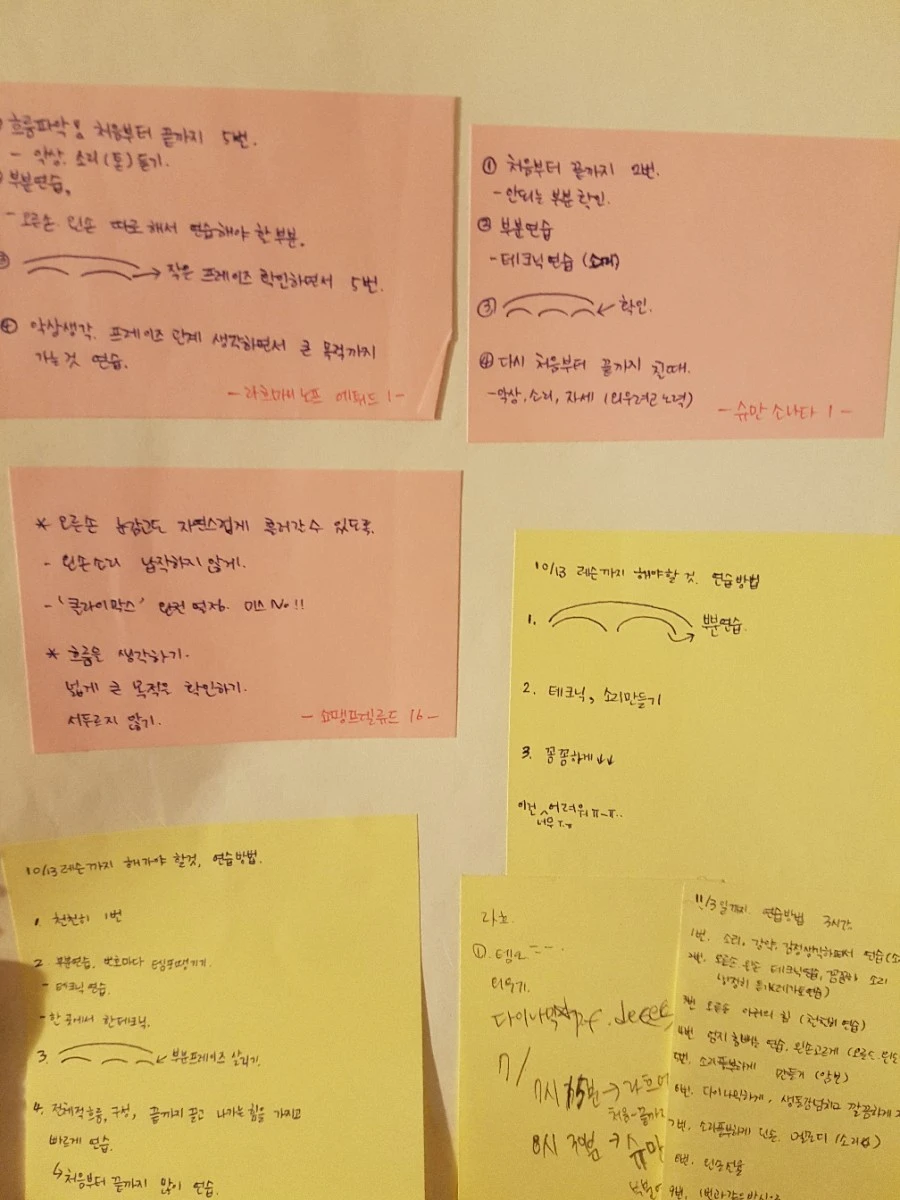 흐름파악용 처음부터 끝까지 5번.
- 악상. 소리(톤) 듣기.
부분연습.
- 오른손 왼손 따로 해서 연습해야 할 부분.
③ 작은 프레이즈 확인하면서 5번.
④ 악상생각. 프레이즈 단계 생각하면서 큰 목적까지
가는 것 연습.
- 라흐마니노프 에튀드 1 -
① 처음부터 끝까지 2번.
- 안되는 부분 확인.
② 부분연습
- 테크닉연습 (소리)
③ 확인.
④ 다시 처음부터 끝까지 칠때.
- 악상. 소리, 자세 (외우려고 노력)
- 슈만 소나타 1 -
* 오른손 눈감고도 자연스럽게 흘러갈수 있도록.
- 왼손소리 납작하지 않게.
- '클라이막스' 완전 열정. 미스 No!!
* 흐름을 생각하기.
넓게 큰 목적을 확인하기.
서두르지 않기.
- 쇼팽프렐류드 16 -
10/13 레슨까지 해야할 것. 연습방법
1. 부분연습.
2. 테크닉, 소리만들기
3. 꼼꼼하게
이건 너무 어려워 ㅠ-ㅠ..
10/13 레슨까지 해가야 할것, 연습방법.
1. 천천히 1번
2. 부분연습. 번호마다 템포땡기기.
- 테크닉 연습.
- 한 곡에서 한 테크닉.
3. 부분프레이즈 살리기.
4. 전체적 흐름, 구성, 끝까지 끌고 나가는 힘을 가지고
빠르게 연습.
↳ 처음부터 끝까지 많이 연습.
라흐.
①. 템포
외우기.
7/
처음-끝까지
8시 슈만
11/3일까지 연습방법 3시간.
1번. 소리, 강약, 감정생각하면서 연습
2번. 오른손 왼손 테크닉연습, 꼼꼼하 소리
3번 오른손 아귀의 힘 (천천히 연습)
4번 엄지 힘빼는 연습. 왼손고르게
5번. 소리풍부하게 만들기
6번. 다이나믹하게, 생동감넘치고 깔끔하게
7번. 소리풍부하게 왼손. 멜로디
8번. 왼손선율
9번.